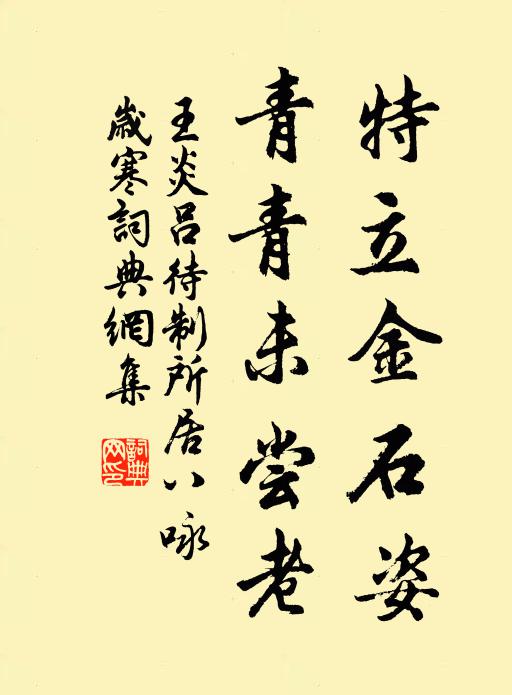 特立金石姿
青青未尝老
王炎吕待制所居八咏
歲寒詞典網集
詞典网印